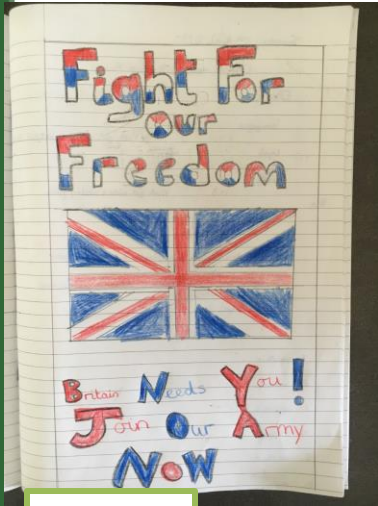 Fight For
our
Freedom
Britain Needs You!
Join Our Army
NOW